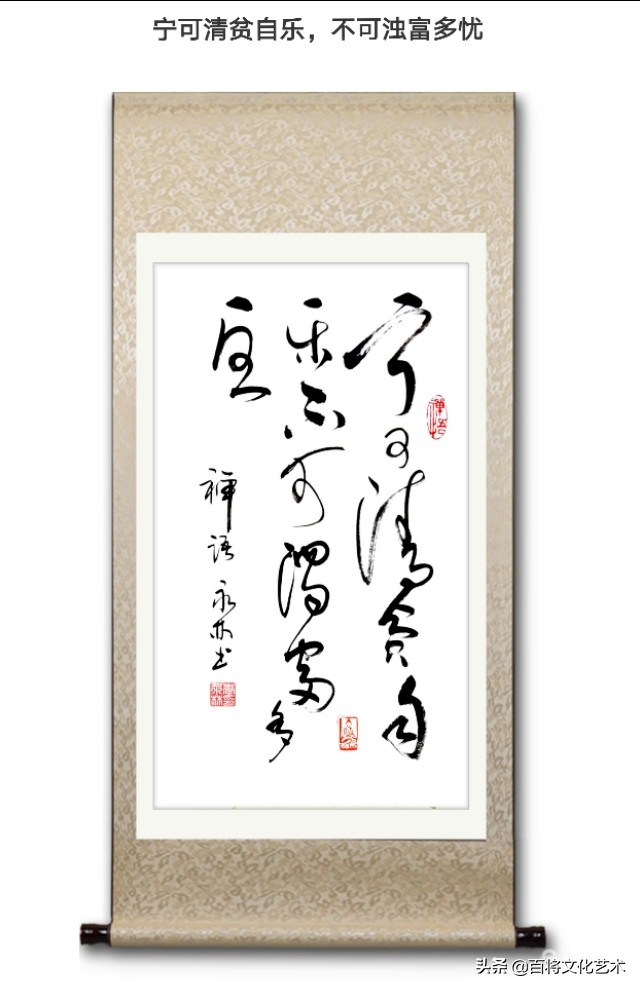 宁可清贫自乐，不可浊富多忧
宁可清贫自
乐不可浊富多
忧
禅语永林书
禅语
头条 @百将文化艺术